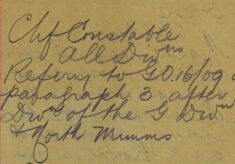 Chf Constable
All Divns
Referng to G.O. 16/09 a
paragraph 3 after
Divn of the G Divn
& North Mimms